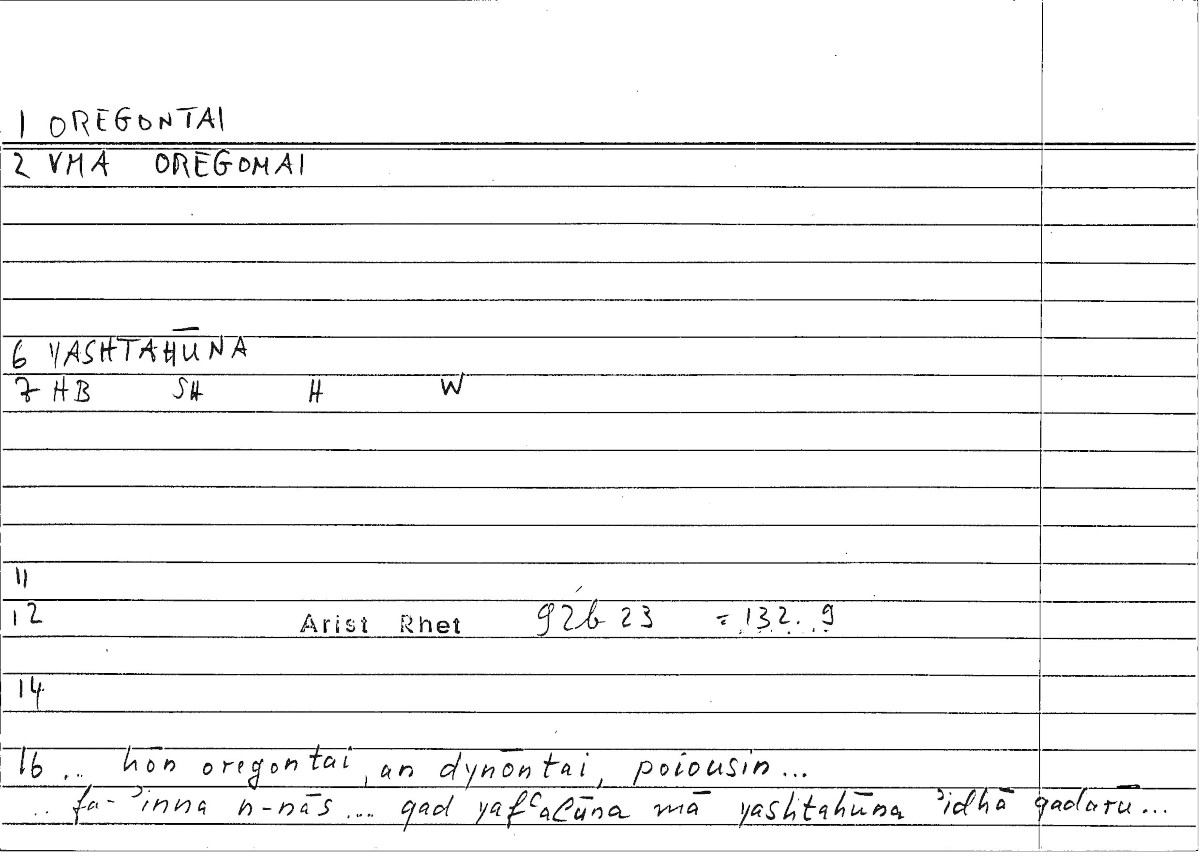 1 OREGONTAI
2 VMA OREGOMAI
6 YASHTAHŪNA
7 HB SH H W
11
12 Arist Rhet 92b 23 = 132. 9
14
16 .. hōn oregontai, an dynōntai, poiousin...
.. fa-ʾinna n-nās ... qad yafʿalūna mā yashtahūna ʾidhā qadarū...